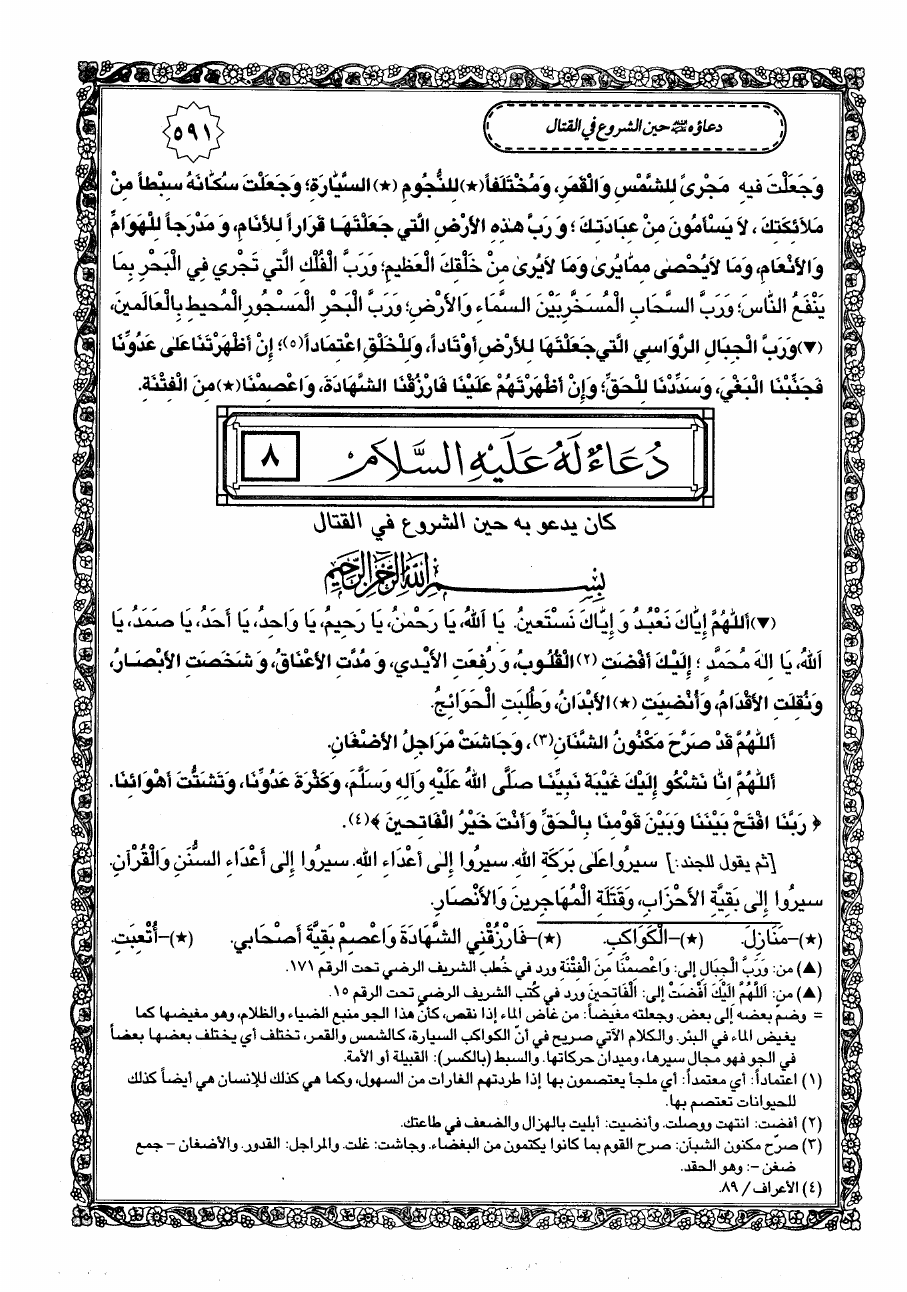 دعاؤه حين الشروع في القتال
٥٩١
وَجَعَلْتَ فيهِ مَجْرىً لِلشَّمْسِ وَالْقَمَرِ، وَمُخْتَلَفاً(★) لِلنُّجُومِ (★) السَّيَّارَةِ؛ وَجَعَلْتَ سُكَّانَهُ سِبْطاً مِنْ
مَلاَئِكَتِكَ، لاَ يَسْأَمُونَ مِنْ عِبَادَتِكَ؛ وَرَبَّ هذِهِ الأَرْضِ الَّتي جَعَلْتَهَا قَرَاراً لِلأَنَامِ، وَ مَدْرَجاً لِلْهَوَامِّ
وَالأَنْعَامِ، وَمَا لاَيُحْصى مِمَّايُرىٰ وَمَا لاَيُرىٰ مِنْ خَلْقِكَ الْعَظيمِ؛ وَرَبَّ الْفُلْكِ الَّتي تَجْري فِي الْبَحْرِ بِمَا
يَنْفَعُ النَّاسَ؛ وَرَبَّ السَّحَابِ الْمُسَخَّرِبَيْنَ السَّمَاءِ وَالأَرْضِ؛ وَرَبَّ الْبَحْرِ الْمَسْجُورِ الْمُحيطِ بِالْعَالَمينَ،
(▼)وَرَبَّ الْجِبَالِ الرَّوَاسِي الَّتي جَعَلْتَهَا لِلأَرْضِ أَوْتَاداً، وَلِلْخَلْقِ اعْتِمَاداً(٥)؛ إِنْ أَظْهَرْتَنَا عَلى عَدُوِّنَا
فَجَنِّبْنَا الْبَغْيَ، وَسَدِّدْنَا لِلْحَقِّ؛ وَإِنْ أَظْهَرْتَهُمْ عَلَيْنَا فَارْزُقْنَا الشَّهَادَةَ، وَاعْصِمْنَا(★) مِنَ الْفِتْنَةِ.
دُعَاءٌ لَهُ عَلَيْهِ السَّلاَمُ
٨
كان يدعو به حين الشروع في القتال
بِسْمِ اللهِ الرَّحْمنِ الرَّحيمِ
(▼)أَللّهُمَّ إِيَّاكَ نَعْبُدُ وَ إِيَّاكَ نَسْتَعينُ. يَا اَللهُ، يَا رَحْمنُ، يَا رَحيمُ، يَا وَاحِدُ، يَا أَحَدُ، يَا صَمَدُ، يَا
اَللهُ، يَا إِلهَ مُحَمَّدٍ؛ إِلَيْكَ أَفْضَتِ (٢) الْقُلُوبُ، وَ رُفِعَتِ الأَيْدي، وَ مُدَّتِ الأَعْنَاقُ، وَ شَخَصَتِ الأَبْصَارُ،
وَنُقِلَتِ الأَقْدَامُ، وَأُنْضِيَتِ (★) الأَبْدَانُ، وَطُلِبَتِ الْحَوَائِجُ.
أَللّهُمَّ قَدْ صَرَّحَ مَكْنُونُ الشَّنَآنِ(٣)، وَجَاشَتْ مَرَاجِلُ الأَضْغَانِ.
أَللّهُمَّ إِنَّا نَشْكُو إِلَيْكَ غَيْبَةَ نَبِيِّنَا صَلَّى اللهُ عَلَيْهِ وَآلِهِ وَسَلَّمَ، وَكَثْرَةَ عَدُوِّنَا، وَتَشَتُّتَ أَهْوَائِنَا.
﴿ رَبَّنَا افْتَحْ بَيْنَنَا وَبَيْنَ قَوْمِنَا بِالْحَقِّ وَأَنْتَ خَيْرُ الْفَاتِحينَ ﴾(٤).
[ثم يقول للجند:] سيرُوا عَلى بَرَكَةِ اللهِ. سيرُوا إِلى أَعْدَاءِ اللهِ. سيرُوا إِلى أَعْدَاءِ السُّنَنِ وَالْقُرْآنِ.
سيرُوا إِلى بَقِيَّةِ الأَحْزَابِ، وَقَتَلَةِ الْمُهَاجِرينَ وَالأَنْصَارِ.
(★)-مَنَازِلَ. (★)-الْكَوَاكِبِ. (★)-فَارْزُقْنِي الشَّهَادَةَ وَاعْصِمْ بَقِيَّةَ أَصْحَابي. (★)-أُتْعِبَتِ.
(▲) من: وَرَبَّ الْجِبَالِ إلى: وَاعْصِمْنَا مِنَ الْفِتْنَةِ ورد في خُطب الشريف الرضي تحت الرقم ١٧١.
(▲) من: اَللّهُمَّ إِلَيْكَ أَفْضَتْ إلى: الْفَاتِحينَ ورد في كُتب الشريف الرضي تحت الرقم ١٥.
= وضم بعضه إلى بعض. وجعلته مغيضاً: من غاض الماء إذا نقص، كأنّ هذا الجو منبع الضياء والظلام، وهو مغيضها كما
يغيض الماء في البئر. والكلام الآتي صريح في أنّ الكواكب السيارة، كالشمس والقمر، تختلف أي يختلف بعضها بعضاً
في الجو فهو مجال سيرها، وميدان حركاتها. والسبط (بالكسر): القبيلة أو الأمة.
(١) اعتماداً: أي معتمداً: أي ملجأ يعتصمون بها إذا طردتهم الغارات من السهول، وكما هي كذلك للإنسان هي أيضاً كذلك
للحيوانات تعتصم بها.
(٢) أفضت: انتهت ووصلت. وأنضيت: أبليت بالهزال والضعف في طاعتك.
(٣) صرّح مكنون الشنآن: صرح القوم بما كانوا يكتمون من البغضاء. وجاشت: غلت. والمراجل: القدور. والأضغان - جمع
ضغن -: وهو الحقد.
(٤) الأعراف / ٨٩.